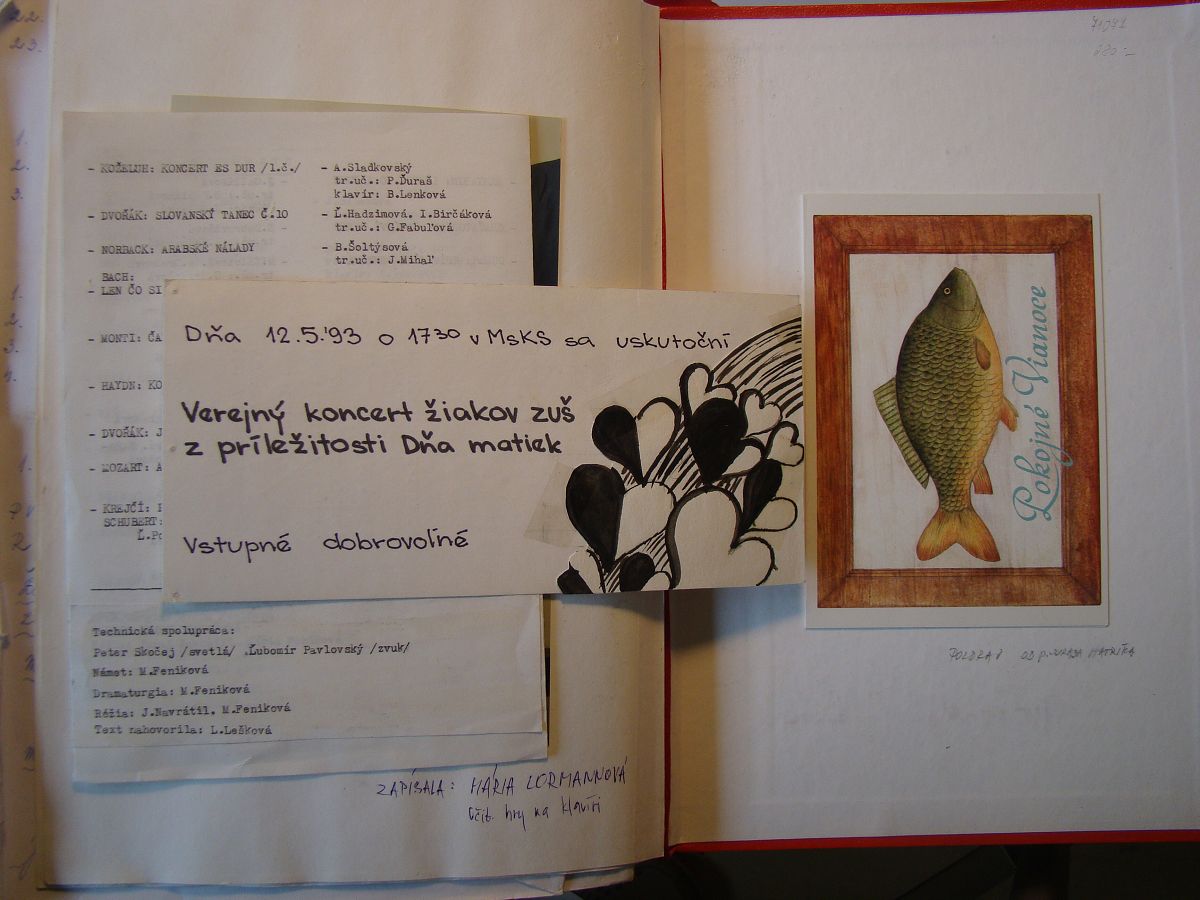 - KOŽELUH: KONCERT ES DUR /1.č./ - A.Sladkovský
tr.uč.: P.Ďuraš
klavír: B.Lenková
- DVOŘÁK: SLOVANSKÝ TANEC Č.10 - Ľ.Hadzimová, I.Birčáková
tr.uč.: G.Fabuľová
- NORBACK: ARABSKÉ NÁLADY - B.Šoltýsová
tr.uč.: J.Mihaľ
BACH:
- LEN ČO SI
- MONTI: ČA
- HAYDN: KO
- DVOŘÁK: J
- MOZART: A
- KREJČÍ:
SCHUBERT:
Dňa 12.5.'93 o 1730 v MsKS sa uskutoční
Verejný koncert žiakov zuš
z príležitosti Dňa matiek
Vstupné dobrovoľné
Technická spolupráca:
Peter Skočej /svetlá/ .Ľubomír Pavlovský /zvuk/
Námet: M.Feniková
Dramaturgia: M.Feniková
Réžia: J.Navrátil, M.Feniková
Text nahovorila: L.Lešková
ZAPÍSALA: MÁRIA LORMANNOVÁ
učit. hry na klavíri
Pokojné Vianoce